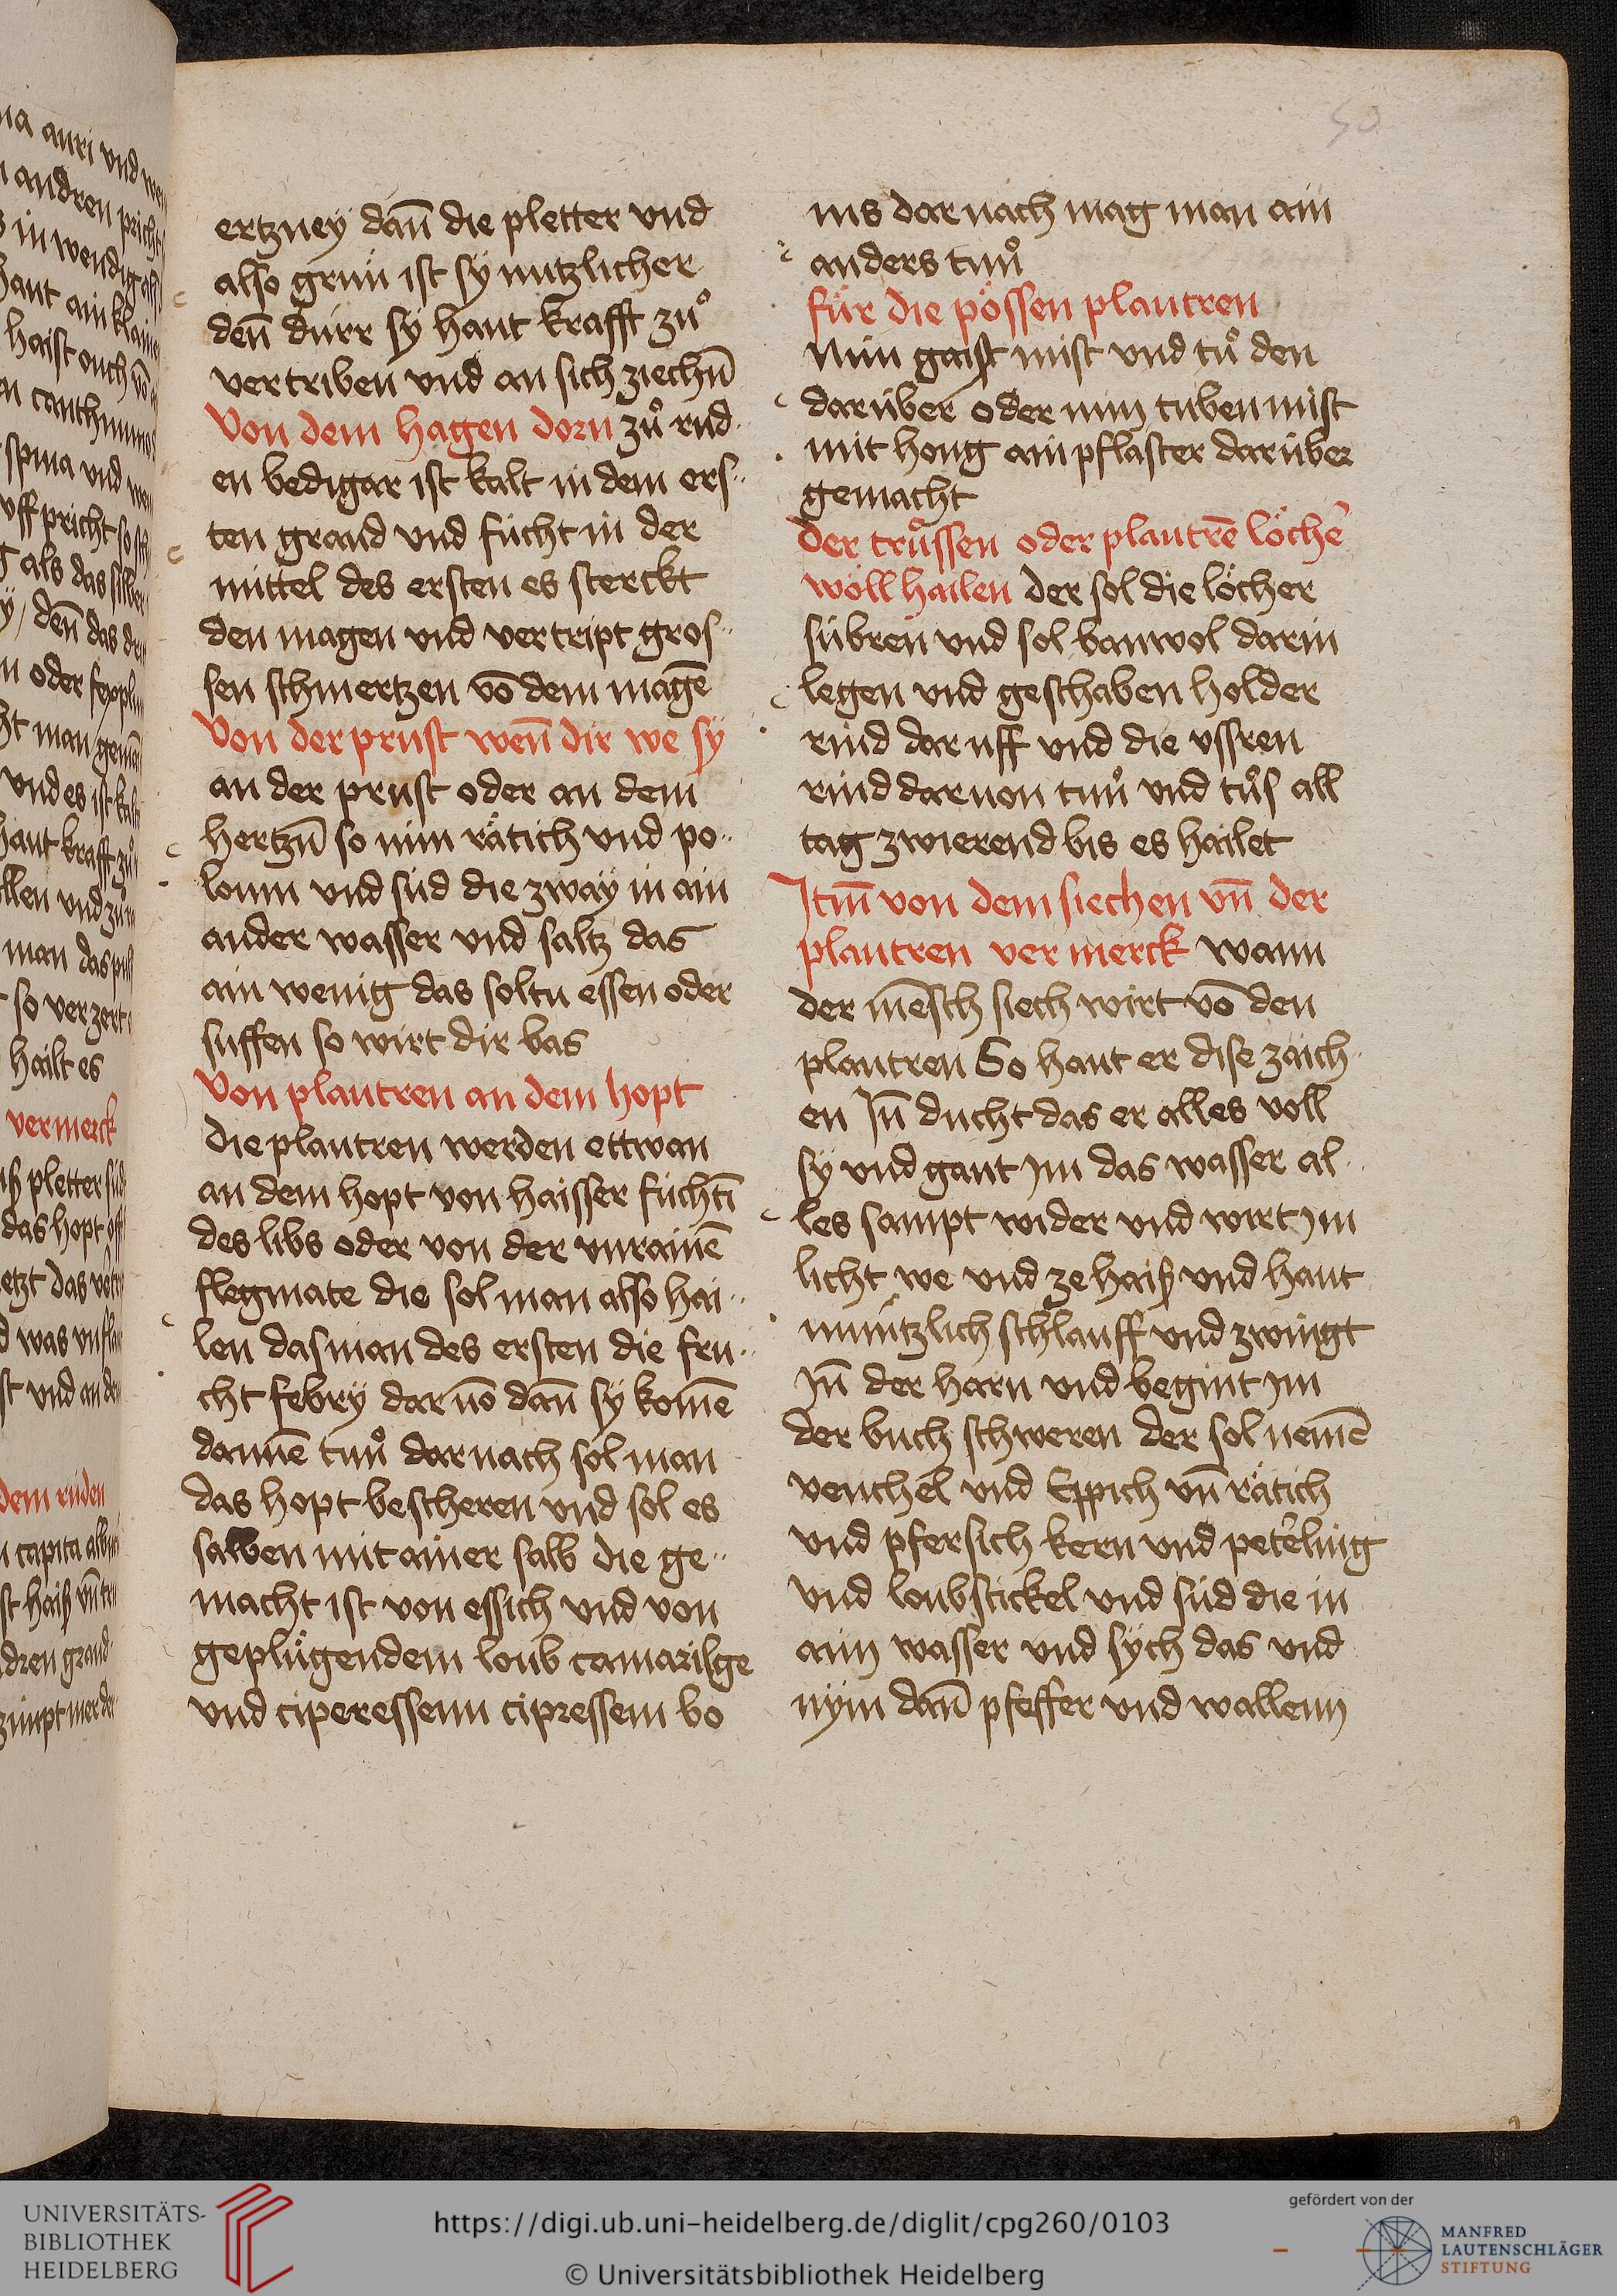 50
ertzney dañ die pletter vnd
also grün ist sy nutzlicher
deñ dürr sy hant krafft zuͦ
vertriben vnd an sich ziechn̄
Von dem hagen dorn zuͦ rnd
en bedigar ist kalt in dem ers¨
ten grand vnd fücht in der
mittel des ersten es sterckt
den magen vnd vertript gros¨
sen schmertzen vō dem magē
Von der prust weñ dir we sy
an der prust oder an dem
hertzn̄ so nim rätich vnd po¨
lonn vnd süd die zway in ain
ander wasser vnd saltz das
ain wenig das soltu essen oder
suffen so wirt dir bas
Von plantren an dem hopt
die plantren werden ettwan
an dem hopt von haisser füchtī
des libs oder von der vnrainē
flegmate die sol man also hai¨
len das man des ersten die fru¨
cht febry dar vō dañ sy komē
dannē tuuͦ dar nach sol man
das hopt bescheren vnd sol es
salben mit ainer salb die ge¨
macht ist von essich vnd von
geplügendem loub camarilge
vnd ciperessenn cipressem bo
ms dar nach mag man ain
anders tuuͦ
für die pössen plantren
Nim gaist mist vnd tuͦ den
darüber oder nim tuben mist
mit hong ain pflaster darüber
gemacht
Der truͦssen oder plantrē löcher
wöll hailen der sol die löcher
sübren vnd sol banwol darin
legen vnd geschaben holder
rind dar uff vnd die vssren
rind dar uon tuuͦ vnd tuͦs all
tag zwierend bis es hailet
Itm̄ von dem siechen vn̄ der
plantren ver merck wann
der mēsch siech wirt vō den
plantren So hant er dise zaich
en Jn̄ ducht das er alles voll
sy vnd gant jm das wasser al
les sampt wider vnd wirt jm
licht we vnd ze haiß vnd hant
nuintzlich schlauff vnd zwingt
jn̄ der harn vnd begint jm
der buch schweren der sol nemē
venchel vnd Eppich vn̄ rätich
vnd pfersich kern vnd peterling
vnd loubstickel vnd süd die in
aim wasser vnd sych das vnd
nym dañ pfeffer vnd wallenn
UNIVERSITÄTS-
BIBLIOTHEK
HEIDELBERG
https://digi.ub.uni-heidelberg.de/diglit/cpg260/0103
© Universitätsbibliothek Heidelberg
gefördert von der
MANFRED
LAUTENSCHLÄGER
STIFTUNG